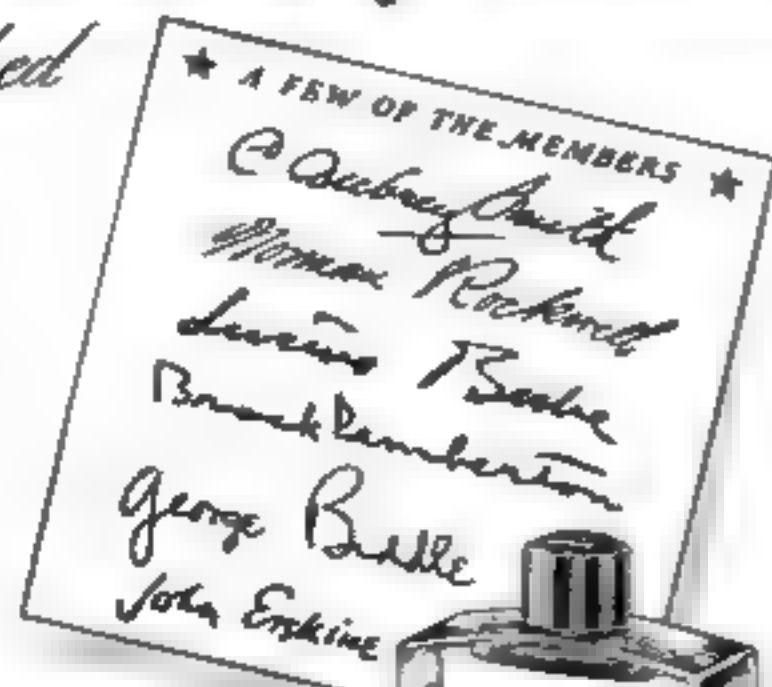 ed
★ A FEW OF THE MEMBERS ★
C Aubrey Smith
Norman Rockwell
Lucius Beebe
Brock Pemberton
George Biddle
John Erskine